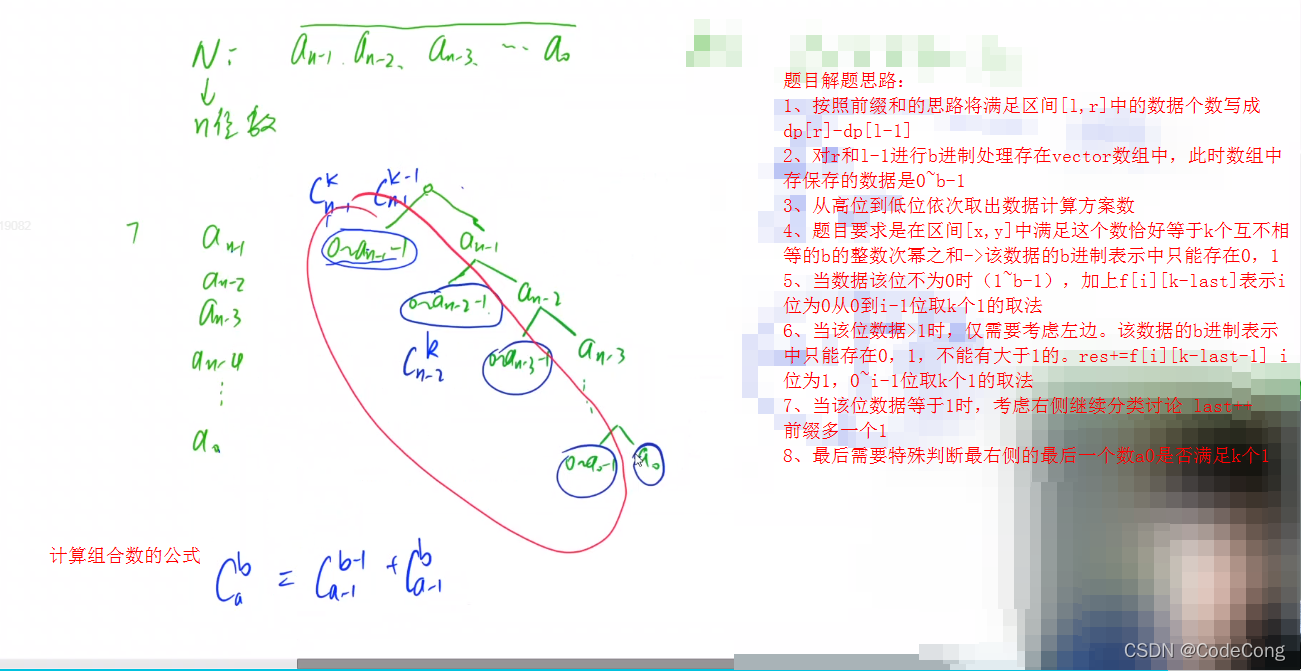 N: aₙ₋₁ aₙ₋₂、 aₙ₋₃、 … a₀
↓
n位数
7
aₙ₋₁
aₙ₋₂
aₙ₋₃
aₙ₋₄
⋮
a₀
Cₙ₋₁ᵏ Cₙ₋₁ᵏ⁻¹
0~aₙ₋₁-1 aₙ₋₁
0~aₙ₋₂-1 aₙ₋₂
Cₙ₋₂ᵏ
0~aₙ₋₃-1 aₙ₋₃
⋮
0~a₀-1 a₀
计算组合数的公式
Cₐᵇ = Cₐ₋₁ᵇ⁻¹ + Cₐ₋₁ᵇ
题目解题思路：
1、按照前缀和的思路将满足区间[l,r]中的数据个数写成
dp[r]-dp[l-1]
2、对r和l-1进行b进制处理存在vector数组中，此时数组中
存保存的数据是0~b-1
3、从高位到低位依次取出数据计算方案数
4、题目要求是在区间[x,y]中满足这个数恰好等于k个互不相
等的b的整数次幂之和->该数据的b进制表示中只能存在0，1
5、当数据该位不为0时（1~b-1），加上f[i][k-last]表示i
位为0从0到i-1位取k个1的取法
6、当该位数据>1时，仅需要考虑左边。该数据的b进制表示
中只能存在0，1，不能有大于1的。res+=f[i][k-last-1] i
位为1，0~i-1位取k个1的取法
7、当该位数据等于1时，考虑右侧继续分类讨论 last++
前缀多一个1
8、最后需要特殊判断最右侧的最后一个数a0是否满足k个1
19082
CSDN @CodeCong